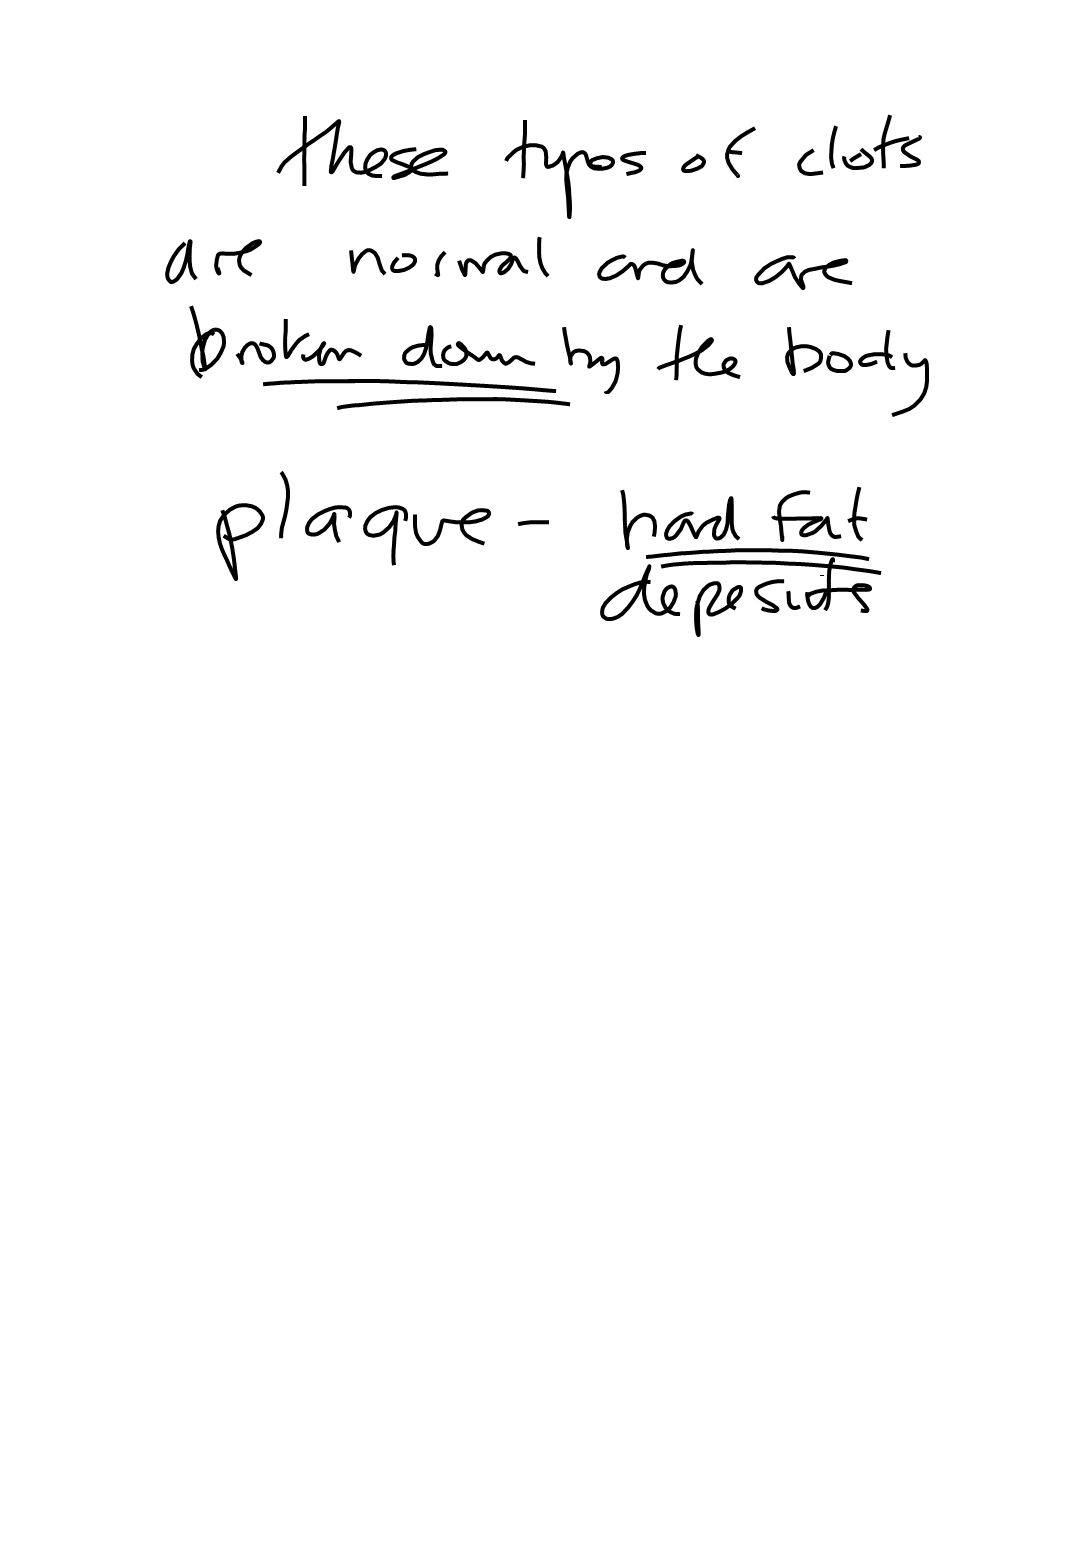 these types of clots
are normal and are
broken down by the body
plaque - hard fat
deposits